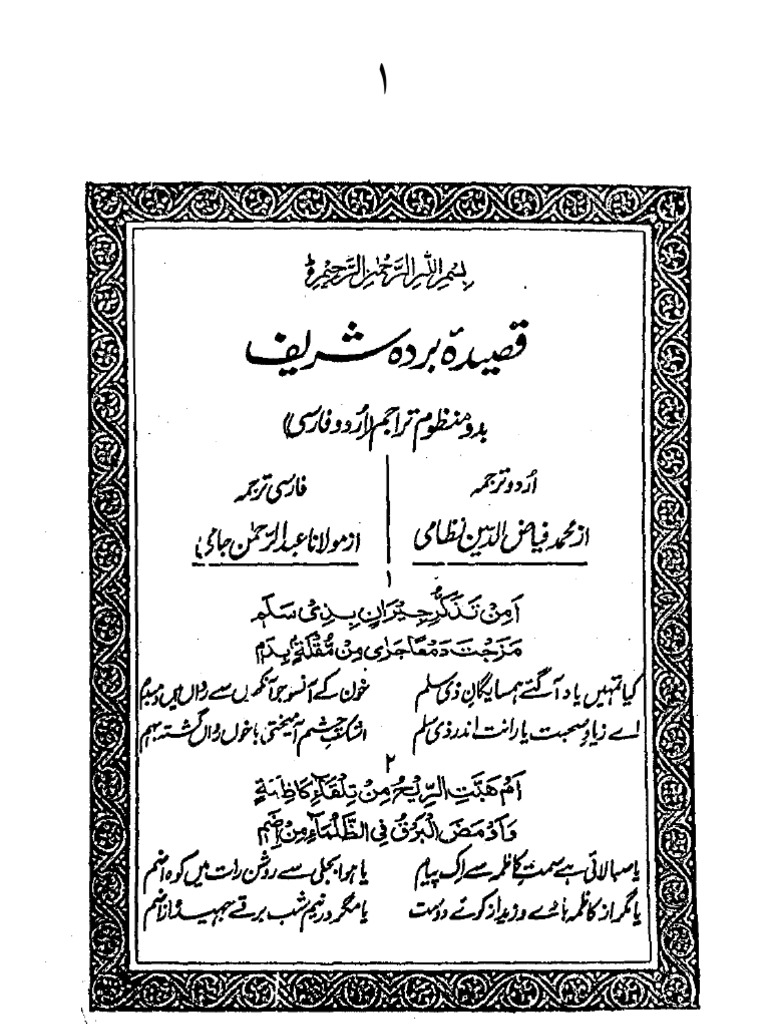 ۱
بِسْمِ اللهِ الرَّحْمٰنِ الرَّحِيْمِ
قصیدہ بردہ شریف
بدو منظوم تراجم (اُردو فارسی)
اُردو ترجمہ
از محمد فیاض الدین نظامی
فارسی ترجمہ
از مولانا عبدالرحمٰن جامی
۱
اَمِنْ تَذَكُّرِ جِيْرَانٍ بِذِيْ سَلَمِ
مَزَجْتَ دَمْعًا جَرٰى مِنْ مُّقْلَةٍ بِدَمِ
کیا تمہیں یاد آگئے ہمسایگانِ ذی سلم خون کے آنسو جو آنکھوں سے رواں ہیں دمبدم
اے زیاد صحبت یارانت اندر ذی سلم اشک چشم آمیختی با خوں رواں گشتہ بہم
۲
اَمْ هَبَّتِ الرِّيْحُ مِنْ تِلْقَآءِ كَاظِمَةٍ
وَاَوْمَضَ الْبَرْقُ فِي الظَّلْمَآءِ مِنْ اِضَمِ
یا صبا لائی ہے سمتِ کاظمہ سے اک پیام یا ہوا بجلی سے روشن رات میں کوہ اضم
یا مگر از کاظمہ بادے وزید از کوئے دوست یا مگر در نیم شب برقے جہید از اضم